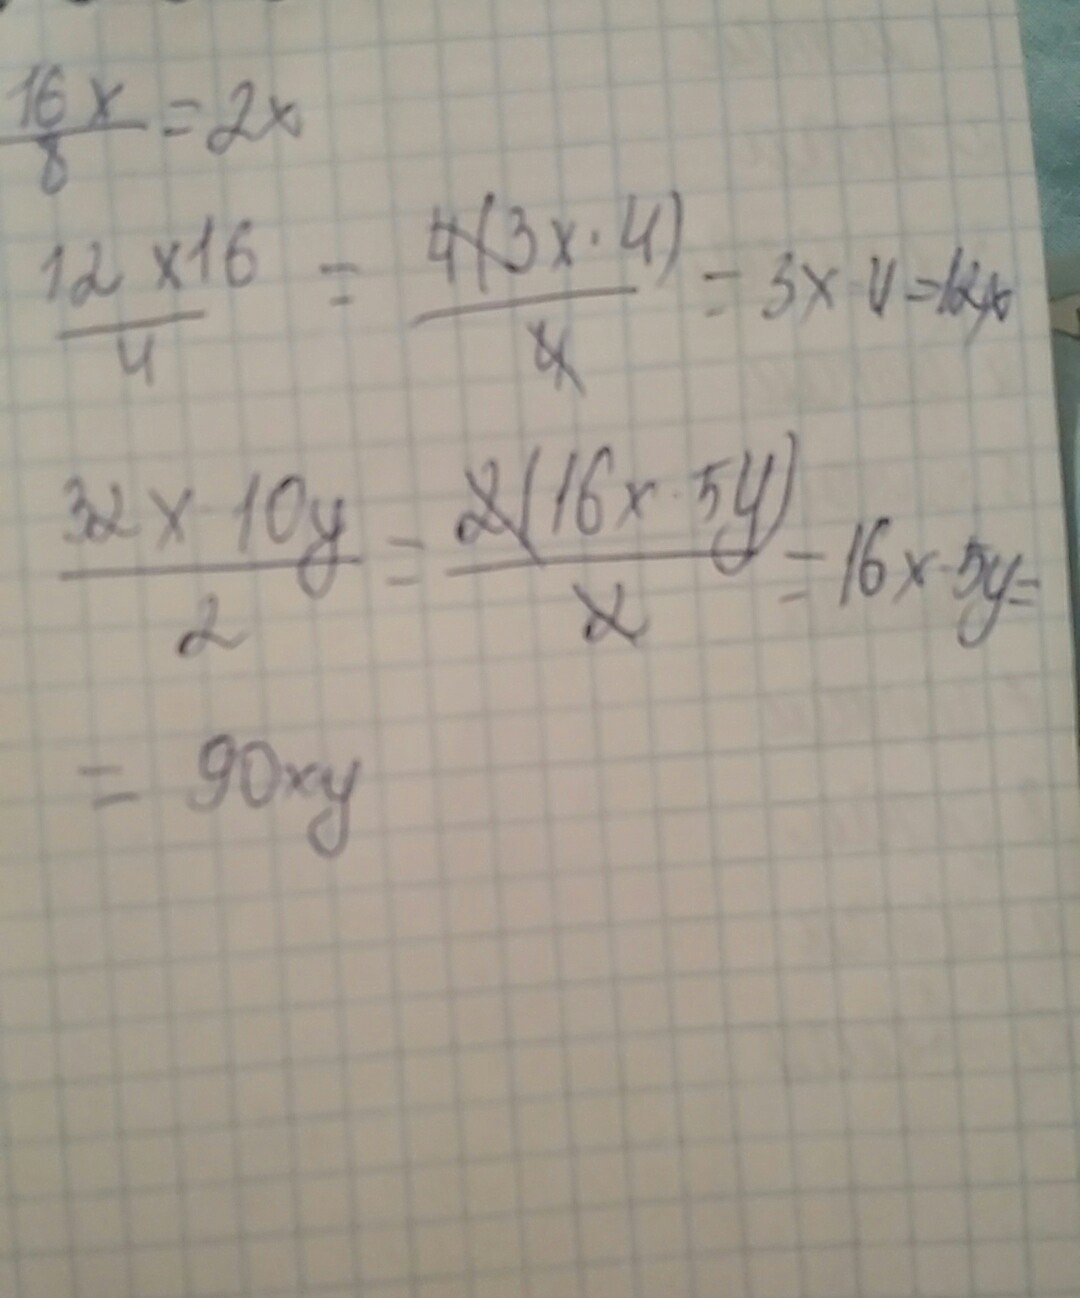 16x/8 = 2x
12x16/4 = 4(3x·4)/4 = 3x·4 = 12x
32x·10y/2 = 2(16x·5y)/2 = 16x·5y=
= 90xy